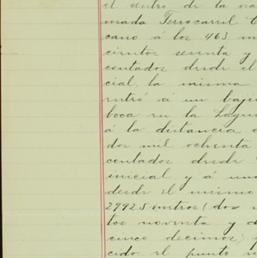 el centro de la
mada Ferrocarril
cano á los 463 m
cientos sesenta y
centados desde el
cial, la misma
entró á un bajo
boca en la Lagu
á la distancia d
dos mil ochenta
centados desde
inicial y á una
desde el mismo
2992.5 metros (dos m
tos noventa y d
cinco decimos)
cido el punto